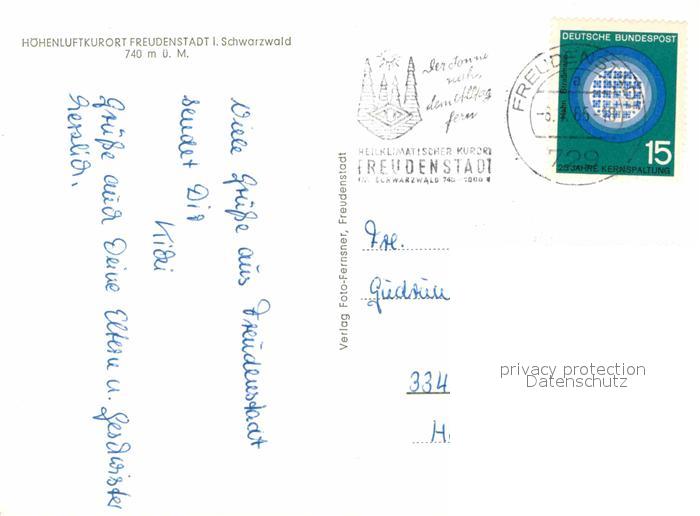 HÖHENLUFTKURORT FREUDENSTADT i. Schwarzwald
740 m ü. M.
Viele Grüße aus Freudenstadt
sendet Dir
Kidi
Grüße auch Deine Eltern u. Geschwister
herzlich.
Verlag Foto-Fernsner, Freudenstadt
Der Sonne
nah,
dem Alltag
fern
HEILKLIMATISCHER KURORT
FREUDENSTADT
IM SCHWARZWALD 740-1000 M
FREUDENST
a
729
DEUTSCHE BUNDESPOST
Hahn Straßmann
15
25 JAHRE KERNSPALTUNG
Frl.
Gudrun
334
H
privacy protection
Datenschutz